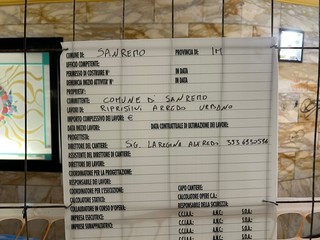 COMUNE DI: SANREMO PROVINCIA DI: IM
UFFICIO COMPETENTE:
PERMESSO DI COSTRUIRE N° IN DATA
DENUNCIA INIZIO ATTIVITA' N° IN DATA
PROPRIETA':
COMMITTENTE: COMUNE DI SANREMO
LAVORI DI: RIPRISTINI ARREDO URBANO
IMPORTO COMPLESSIVO DEI LAVORI: €
DATA INIZIO LAVORI: DATA CONTRATTUALE DI ULTIMAZIONE DEI LAVORI:
PROGETTISTA:
DIRETTORE DEL CANTIERE: SG. LAREGINA ALFREDO
ASSISTENTE DEL DIRETTORE DI CANTIERE:
DIRETTORE DEI LAVORI:
COORDINATORE PER LA PROGETTAZIONE:
RESPONSABILE DEI LAVORI:
COORDINATORE PER L'ESECUZIONE: CAPO CANTIERE:
CALCOLATORE STATICO: CALCOLATORE OPERE C.A.:
COLLAUDATORE IN CORSO D'OPERA: RESPONSABILE DELLA SICUREZZA:
IMPRESA ESECUTRICE: CCIAA: ANC: SOA:
IMPRESE SUBAPPALTATRICI: CCIAA: ANC: SOA:
CCIAA: ANC: SOA:
CCIAA: ANC: SOA: